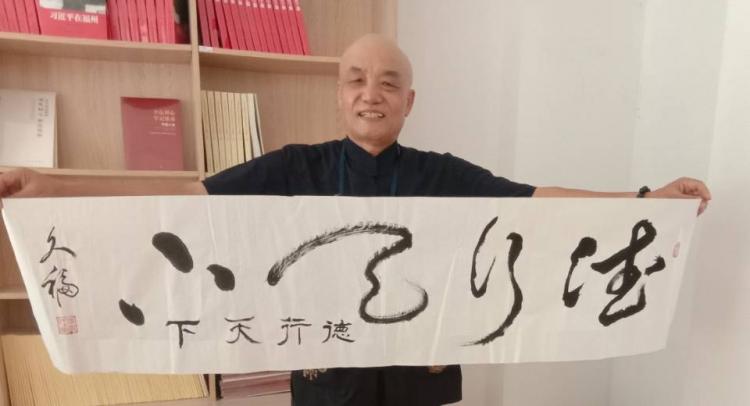 习近平在福州
德行天下
德行天下
久福